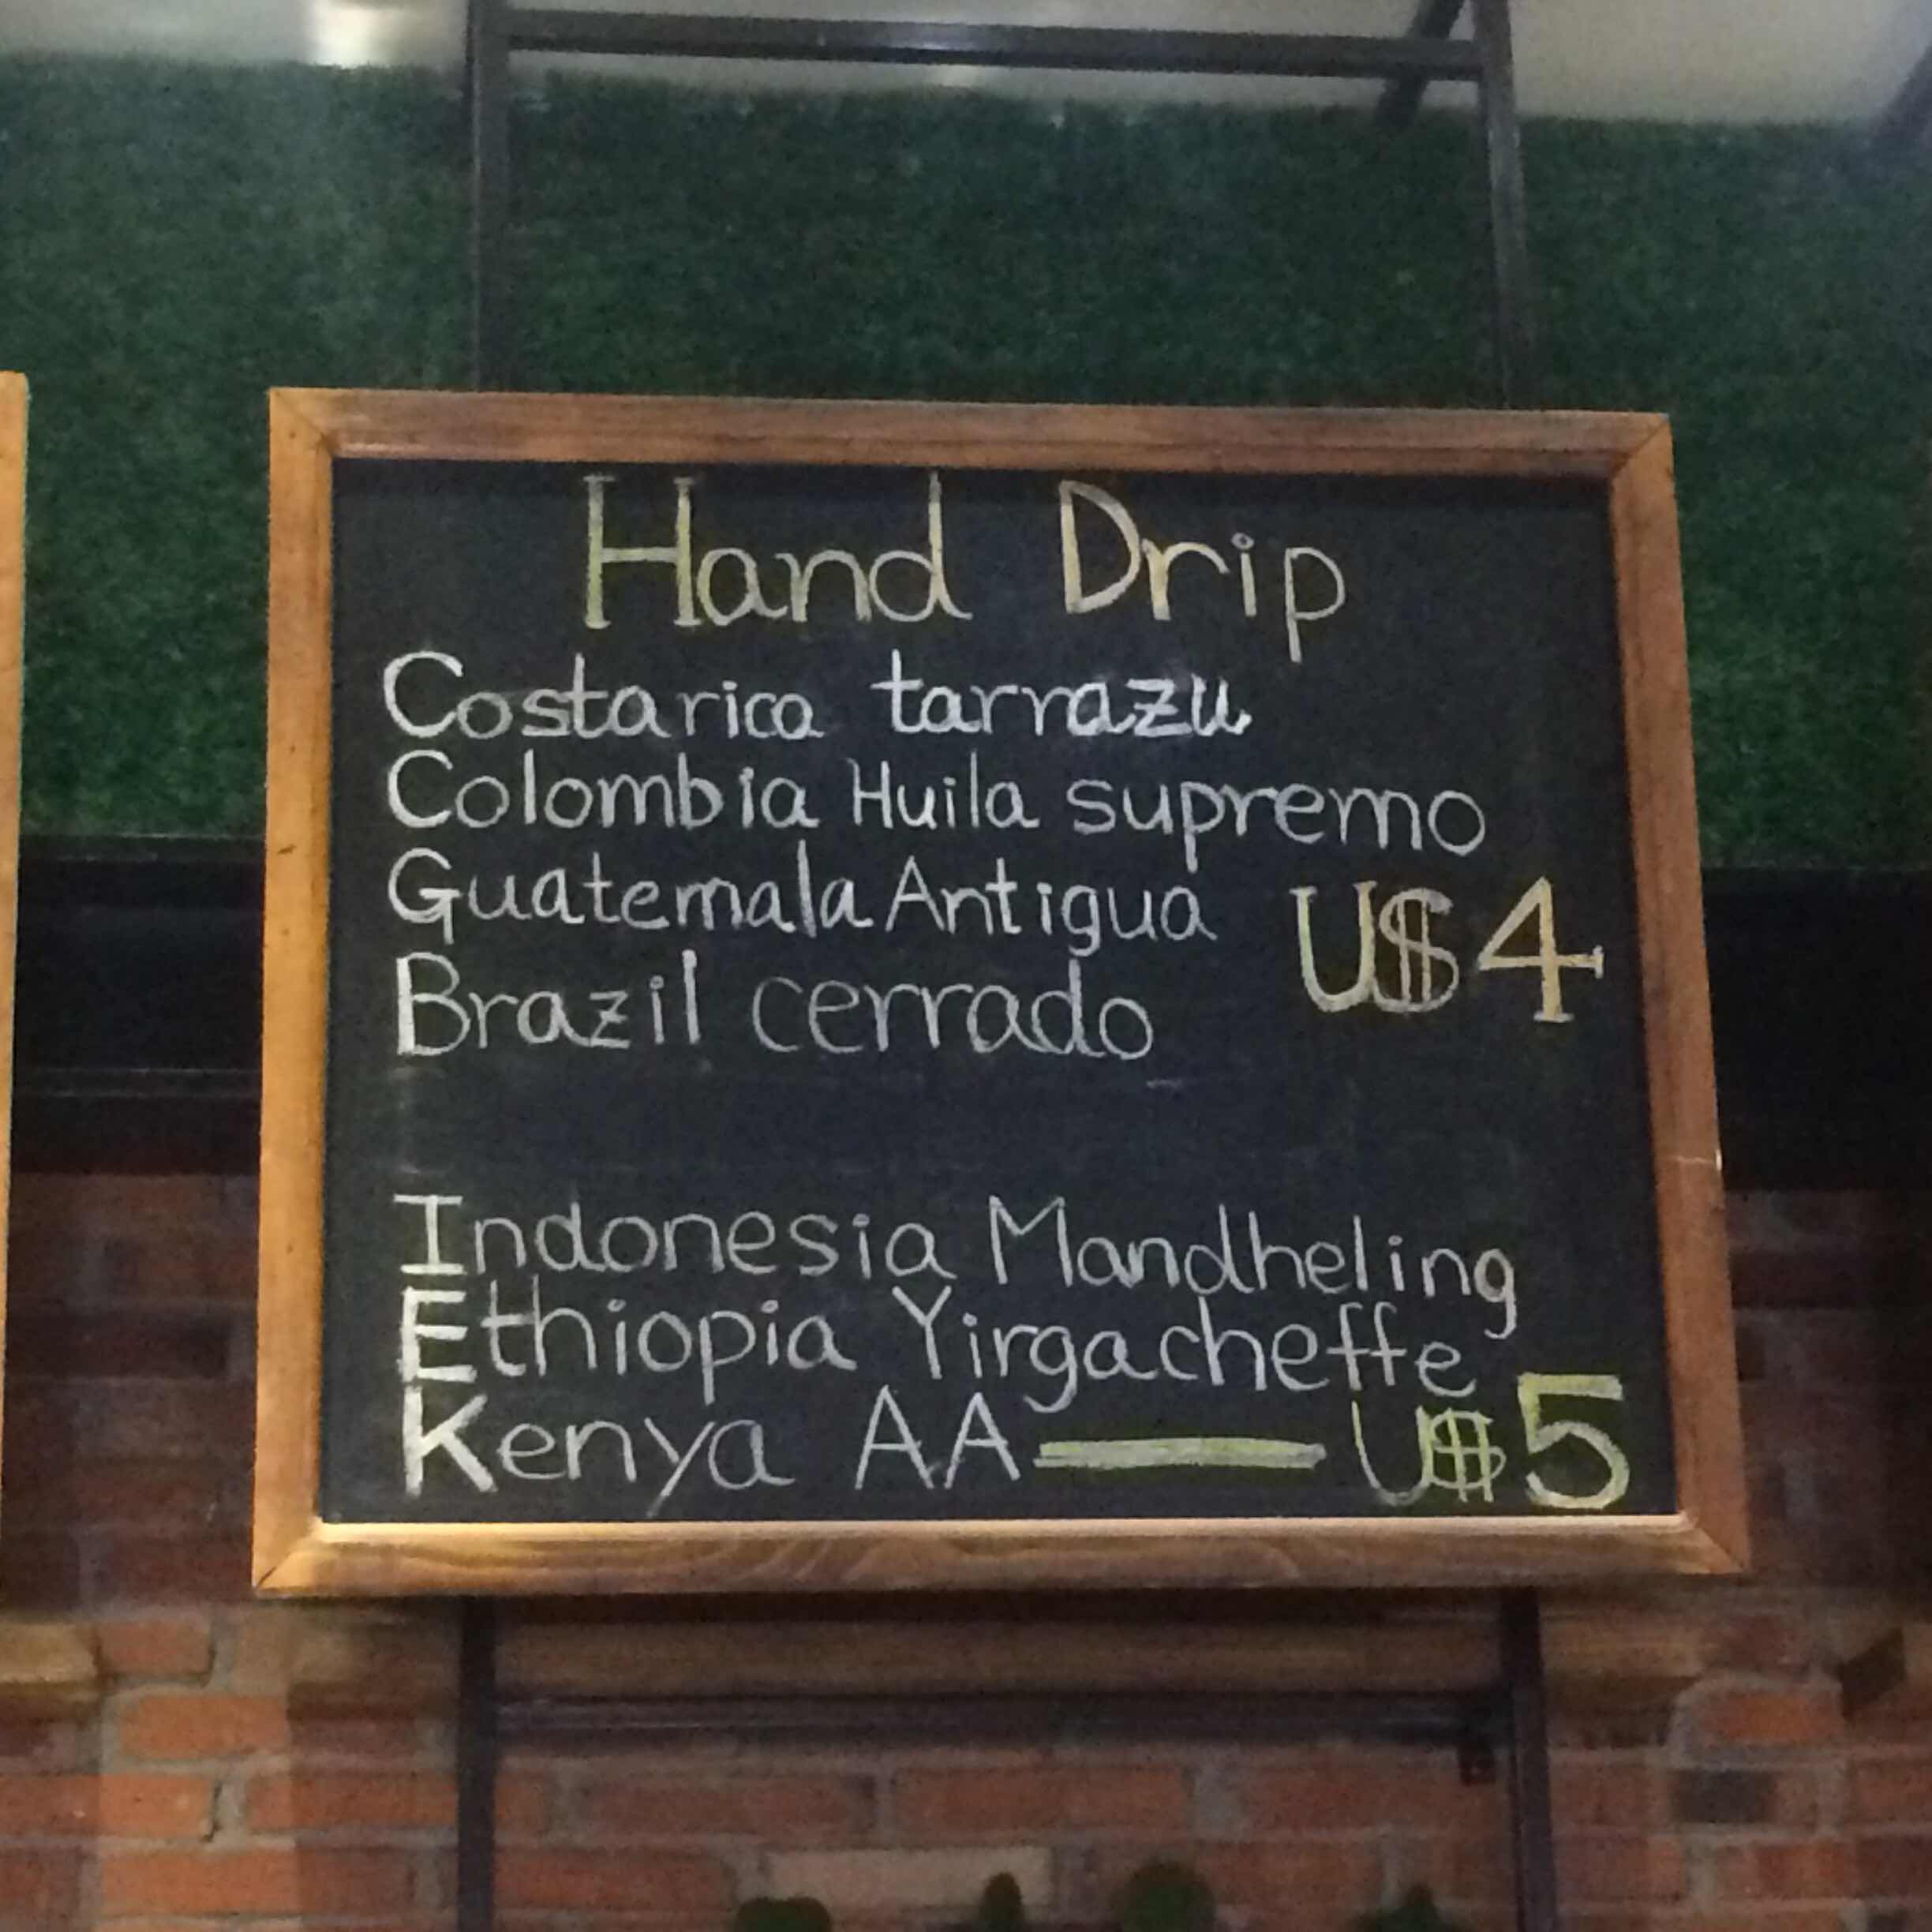 Hand Drip
Costarica tarrazu
Colombia Huila supremo
Guatemala Antigua U$4
Brazil cerrado
Indonesia Mandheling
Ethiopia Yirgacheffe
Kenya AA — U$5